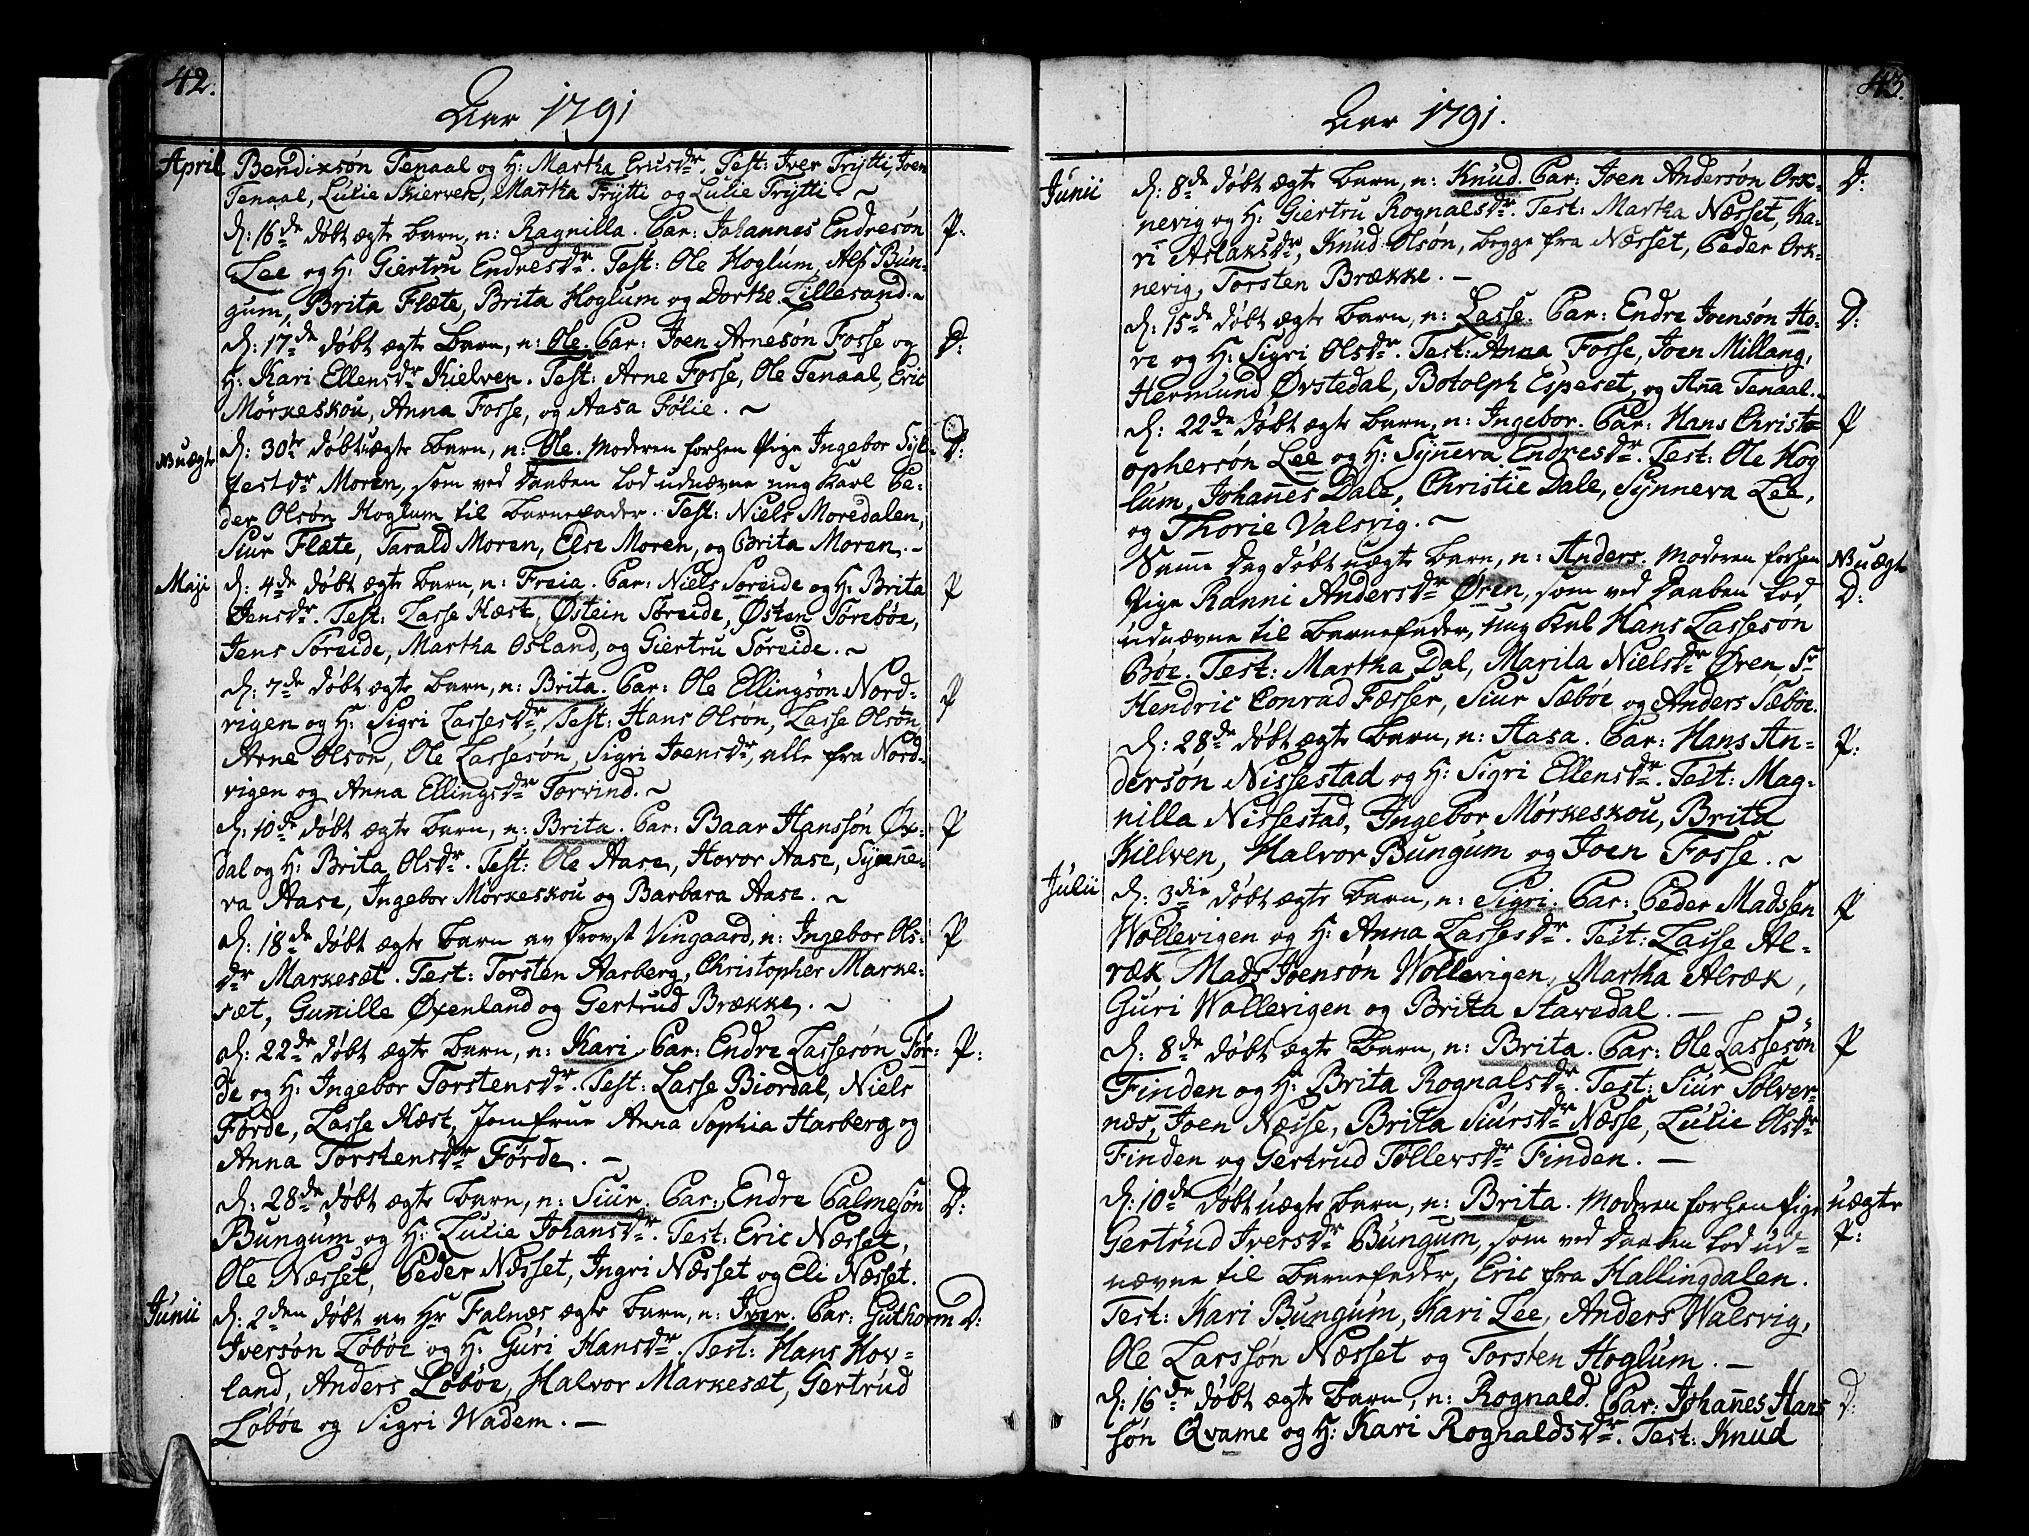 42.
Aar 1791
April Bendixsøn Tenaal og H: Martha Ericsdr. Test: Iver Trÿtti, Joen
Tenaal, Lulie Skierven, Martha Frÿtti og Lulie Trÿtti ~
d: 16de døbt ægte Barn, n: Ragnilla. Par: Johannes Endresøn P.
Lee og H: Giertru Endresdr. Test: Ole Hoglum, Alf Bun-
gum, Brita Flæte, Brita Hoglum og Dorthe Lillesand. ~
d: 17de døbt ægte Barn, n: Ole. Par: Joen Arnesøn Fosse og D:
H: Kari Ellensdr Kielven. Test: Arne Fosse, Ole Tenaal, Eric
Mørkeskou, Anna Fosse, og Aasa Følie. ~
NB uægte d: 30te døbt uægte Barn, n: Ole. Moderen forhen Pige Ingebor Syl- D:
festdr Moren, som ved Daaben lod udnævne ung Karl Pe-
der Olsøn Hoglum til Barnefader. Test: Niels Moredalen,
Siur Flæte, Tarald Moren, Else Moren, og Brita Moren. -
Maji d: 4de døbt ægte Barn, n: Freia. Par: Niels Søreide og H: Brita P
Jensdr. Test: Lasse Hæst, Østein Søreide, Østen Torebøe,
Jens Søreide, Martha Osland, og Giertru Søreide. ~
d: 7de døbt ægte Barn, n: Brita. Par: Ole Ellingsøn Nord- P
vigen og H: Sigri Lassesdr. Test: Hans Olsøn, Lasse Olsøn
Arne Olsøn, Ole Lassesøn, Sigri Joensdr, alle fra Nord-
vigen og Anna Ellingsdr Torvind. ~
d: 10de døbt ægte Barn, n: Brita. Par: Baar Hanssøn Øx- P
dal og H: Brita Olsdr. Test: Ole Aase, Hovor Aase, Synne-
va Aase, Ingebor Mørkeskou og Barbara Aase. ~
d: 18de døbt ægte Barn av Provst Vingaard, n: Ingebor Ols- P
dr Markeset. Test: Torsten Aarberg, Christopher Marke-
sæt, Gunille Øxenland og Gertrud Brække. ~
d: 22de døbt ægte Barn, n: Kari. Par: Endre Lassesøn Før- P:
de og H: Ingebor Torstensdr. Test: Lasse Biordal, Niels
Førde, Lasse Hæst, Jomfrue Anna Sophia Harberg og
Anna Torstensdr Førde. -
d: 28de døbt ægte Barn, n: Siur. Par: Endre Palmesøn D:
Bungum og H: Lulie Johansdr. Test: Eric Næsset,
Ole Næsset, Peder Næsset, Ingri Næsset og Eli Næsset.
Junii d: 2den døbt av Hr Falnæs ægte Barn, n: Iver. Par: Guthorm D:
Iversøn Løbøe og H: Guri Hansdr. Test: Hans Hov-
land, Anders Løbøe, Halvor Markesæt, Gertrud
Løbøe og Sigri Wadem. -
43.
Aar 1791.
Junii d: 8de døbt ægte Barn, n: Knud. Par: Joen Andersøn Ork- D:
nevig og H: Giertru Rognalsdr. Test: Martha Næsset, Ka-
ri Aslaksdr, Knud Olsøn, begge fra Næsset, Peder Ork-
nevig, Torsten Brække. -
d: 15de døbt ægte Barn, n: Lasse. Par: Endre Joensøn Ho- D:
ve og H: Sigri Olsdr. Test: Anna Fosse, Joen Millang,
Hermund Øvstedal, Botolph Espeset, og Anna Tenaal. -
d: 22de døbt ægte Barn, n: Ingebor. Par: Hans Christo- P
ophersøn Lee og H: Synneva Endresdr. Test: Ole Hog
lum, Johannes Dale, Christie Dale, Synneva Lee,
og Thorie Valsvig. ~
Samme Dag døbt uægte Barn, n: Anders. Moderen forhen NB uægte
Pige Ranni Andersdr Øren, som ved Daaben lod D:
udnævne til Barnefader, ung Karl Hans Lassesøn
Bøe. Test: Martha Dal, Marila Nielsdr Øren, Sr
Hendric Conrad Fæsser, Siur Sæbøe og Anders Sæbøe.
d: 28de døbt ægte Barn, n: Aasa. Par: Hans An- P:
dersøn Nissestad og H: Sigri Ellensdr. Test: Mag-
nilla Nissestad, Ingebor Mørkeskou, Brita
Kielven, Halvor Bungum og Joen Fosse. ~
Julii d: 3die døbt ægte Barn, n: Sigri. Par: Peder Madssen P
Wollevigen og H: Anna Lassesdr. Test: Lasse Al-
ræk, Mads Joensøn Wollevigen, Martha Alræk,
Guri Wollevigen og Brita Stavedal. -
d: 8de døbt ægte Barn, n: Brita. Par: Ole Lassesøn P
Finden og H: Brita Rognalsdr. Test: Siur Solver-
næs, Joen Næsse, Brita Siursdr Næsse, Lulie Olsdr
Finden og Gertrud Tøllersdr Finden. -
d: 10de døbt uægte Barn, n: Brita. Moderen forhen Pige uægte
Gertrud Iversdr Bungum, som ved Daaben lod ud- P:
nævne til Barnefader, Eric fra Hallingdalen.
Test: Kari Bungum, Kari Lee, Anders Walsvig,
Ole Larssøn Næsset og Torsten Hoglum. -
d: 16de døbt ægte Barn, n: Rognald. Par: Johannes Hans D:
søn Qvame og H: Kari Rognaldsdr. Test: Knud